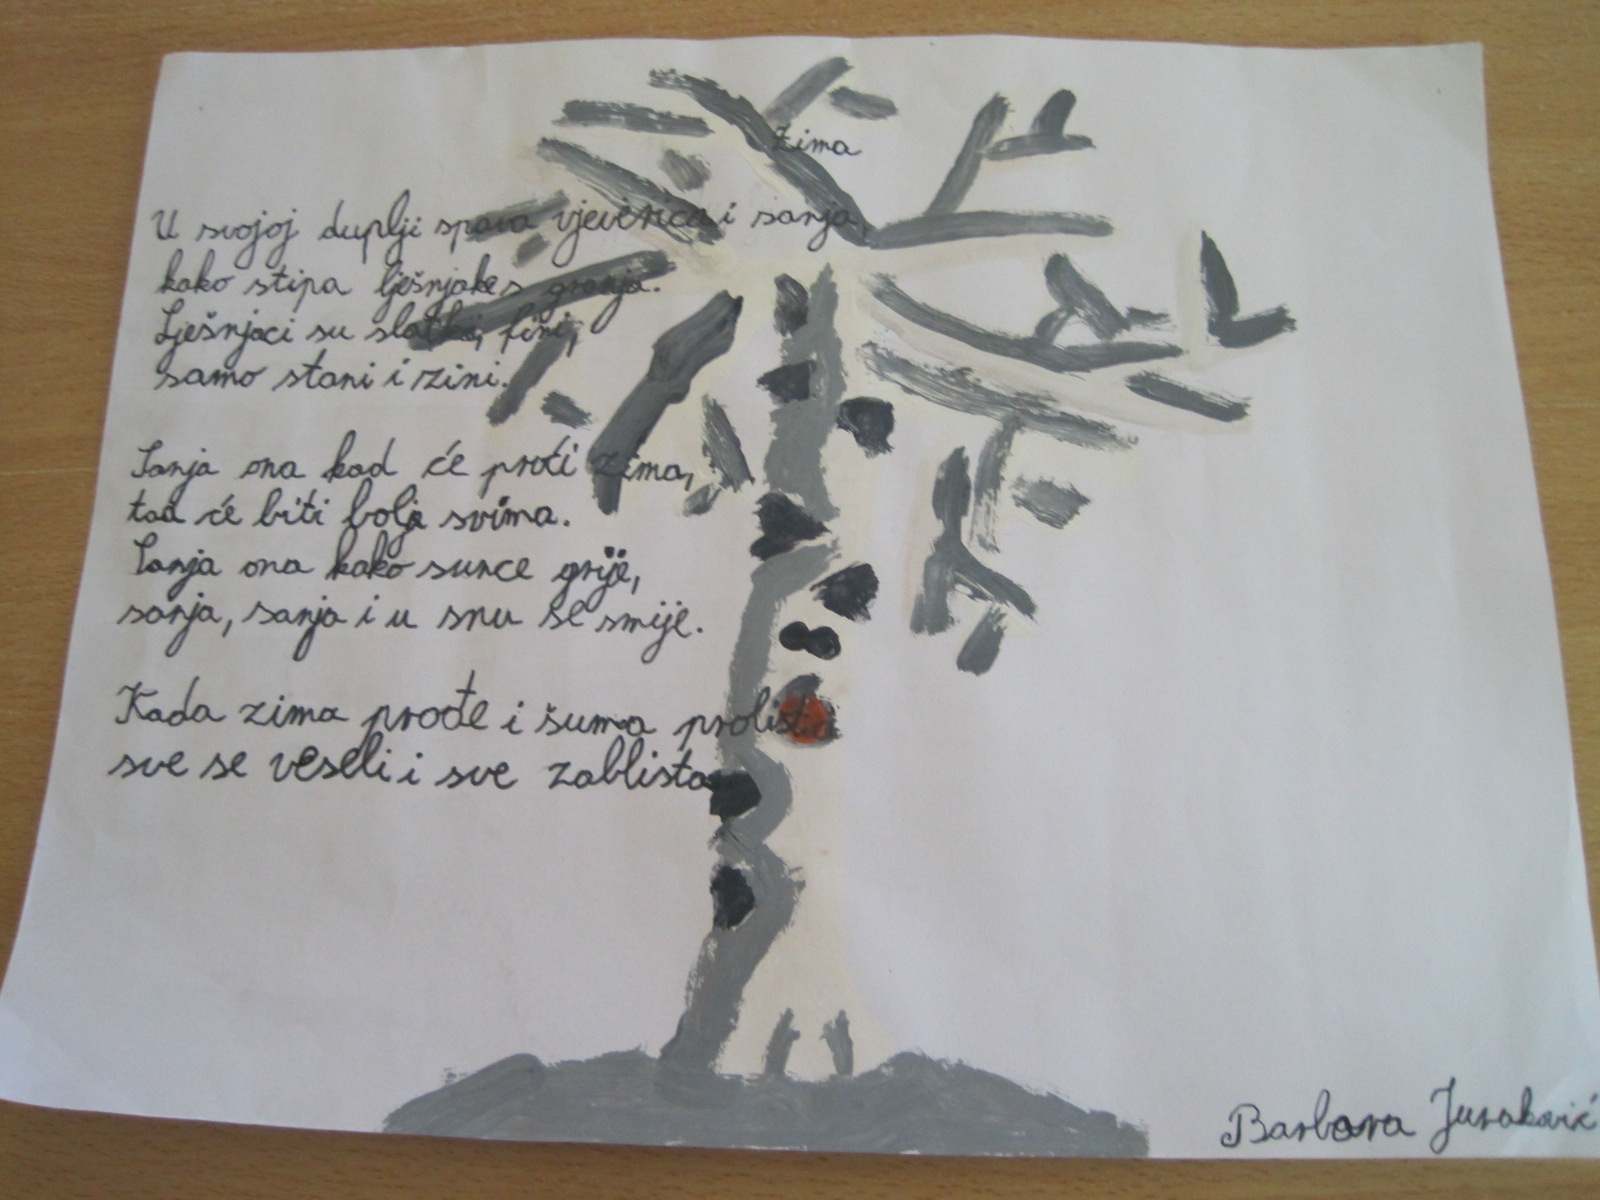 Zima
U svojoj duplji spava vjeverica i sanja,
kako stipa lješnjake s granja.
Lješnjaci su slatki, fini,
samo stani i zini.
Sanja ona kad će proći zima,
tad će biti bolje svima.
Sanja ona kako sunce grije,
sanja, sanja i u snu se smije.
Kada zima prođe i šuma prolista
sve se veseli i sve zablista
Barbara Juraković